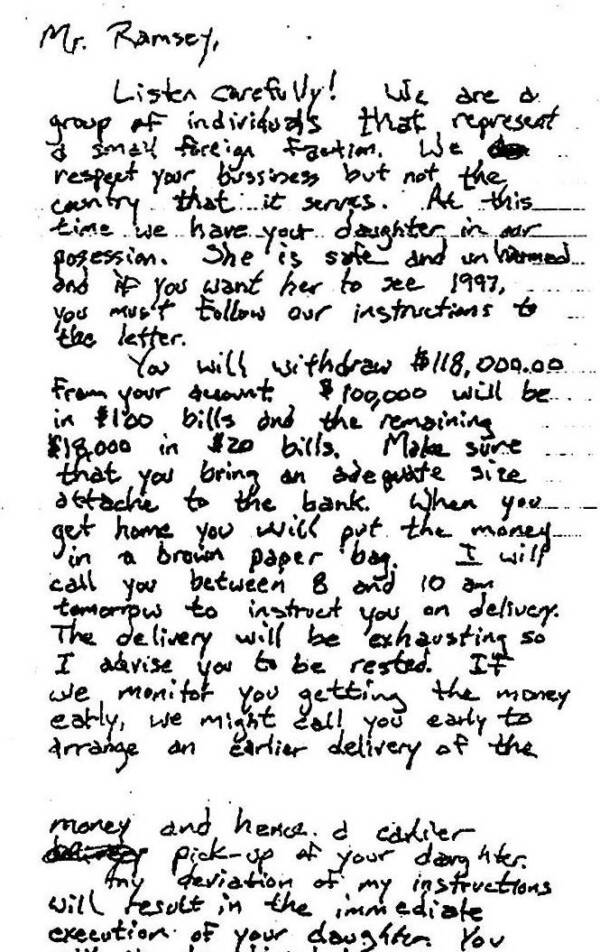 Mr. Ramsey,
Listen carefully! We are a
group of individuals that represent
a small foreign faction. We
respect your bussiness but not the
country that it serves. At this
time we have your daughter in our
posession. She is safe and unharmed
and if you want her to see 1997,
you must follow our instructions to
the letter.
You will withdraw $118,000.00
from your account. $100,000 will be
in $100 bills and the remaining
$18,000 in $20 bills. Make sure
that you bring an adequate size
attache to the bank. When you
get home you will put the money
in a brown paper bag. I will
call you between 8 and 10 am
tomorrow to instruct you on delivery.
The delivery will be exhausting so
I advise you to be rested. If
we monitor you getting the money
early, we might call you early to
arrange an earlier delivery of the
money and hence a earlier
pick-up of your daughter.
Any deviation of my instructions
will result in the immediate
execution of your daughter. You